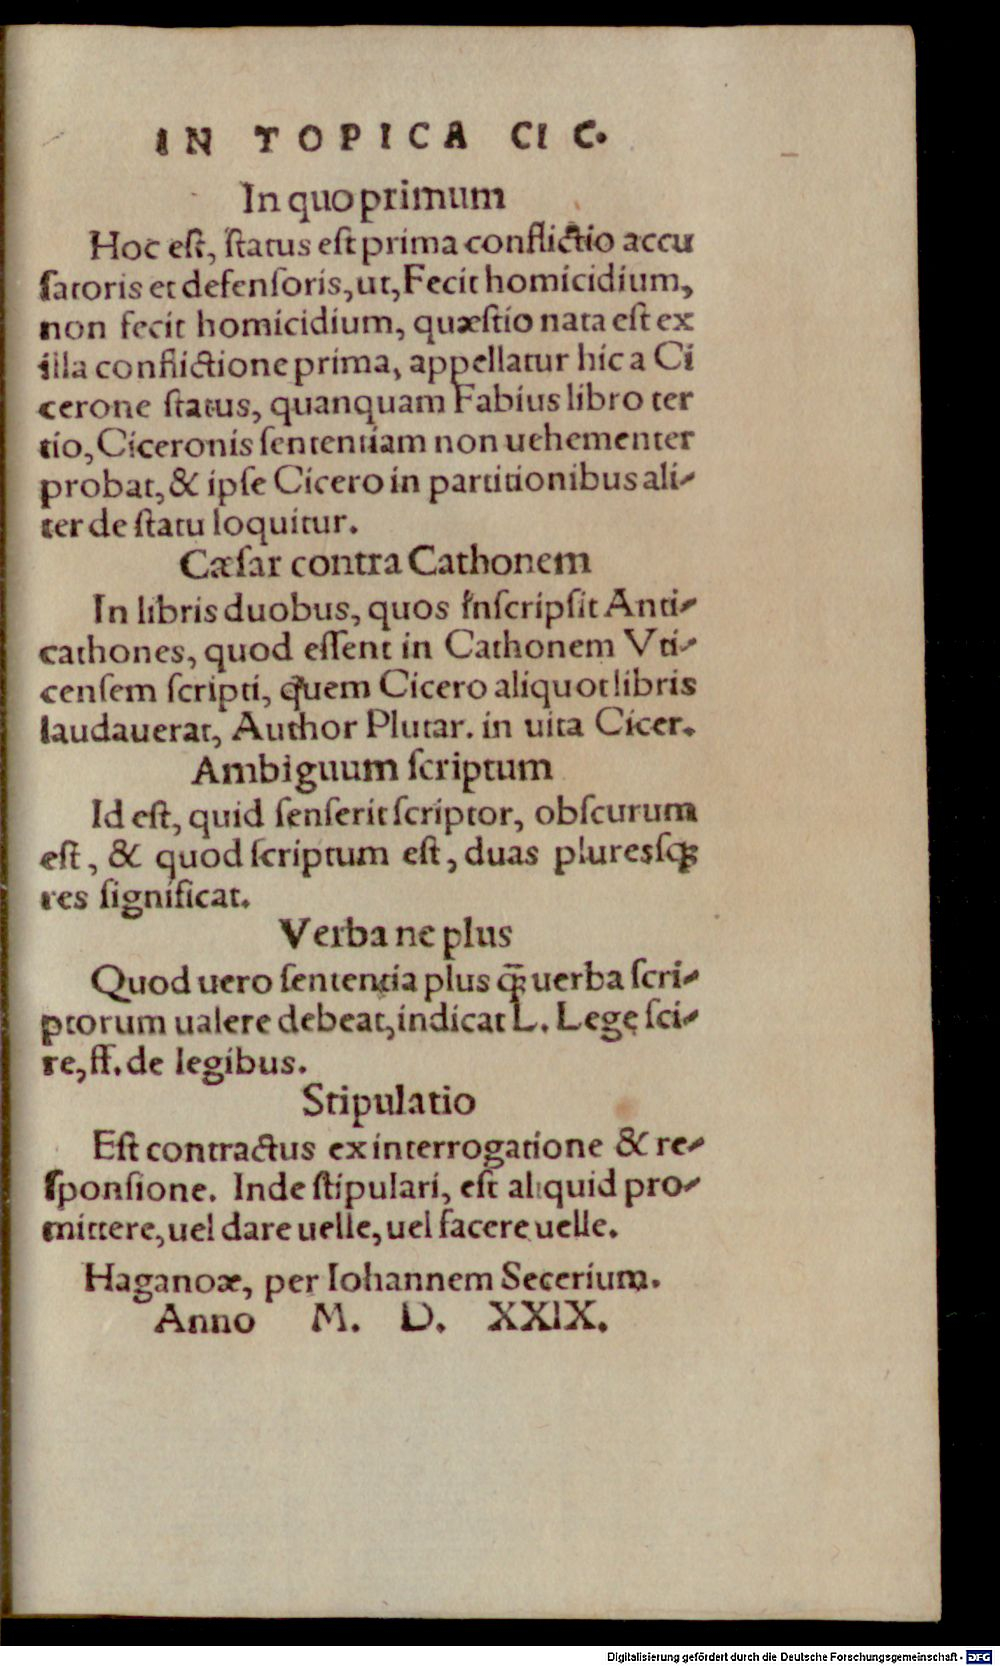 IN TOPICA CIC.
In quo primum
Hoc eſt, ſtatus eſt prima conflictio accu
ſatoris et defenſoris, ut, Fecit homicidium,
non fecit homicidium, quæſtio nata eſt ex
illa conflictione prima, appellatur hic a Ci
cerone ſtatus, quanquam Fabius libro ter
tio, Ciceronis ſententiam non uehementer
probat, & ipſe Cicero in partitionibus ali-
ter de ſtatu loquitur.
Cæſar contra Cathonem
In libris duobus, quos inſcripſit Anti-
cathones, quod eſſent in Cathonem Vti-
cenſem ſcripti, quem Cicero aliquot libris
laudauerat, Author Plutar. in uita Cicer.
Ambiguum ſcriptum
Id eſt, quid ſenſerit ſcriptor, obſcurum
eſt, & quod ſcriptum eſt, duas pluresſq́;
res ſignificat.
Verba ne plus
Quod uero ſententia plus q̃; uerba ſcri-
ptorum ualere debeat, indicat L. Lege ſci-
re, ff. de legibus.
Stipulatio
Eſt contractus ex interrogatione & re-
ſponſione. Inde ſtipulari, eſt aliquid pro-
mittere, uel dare uelle, uel facere uelle.
Haganoæ, per Iohannem Secerium.
Anno M. D. XXIX.
Digitalisierung gefördert durch die Deutsche Forschungsgemeinschaft - DFG